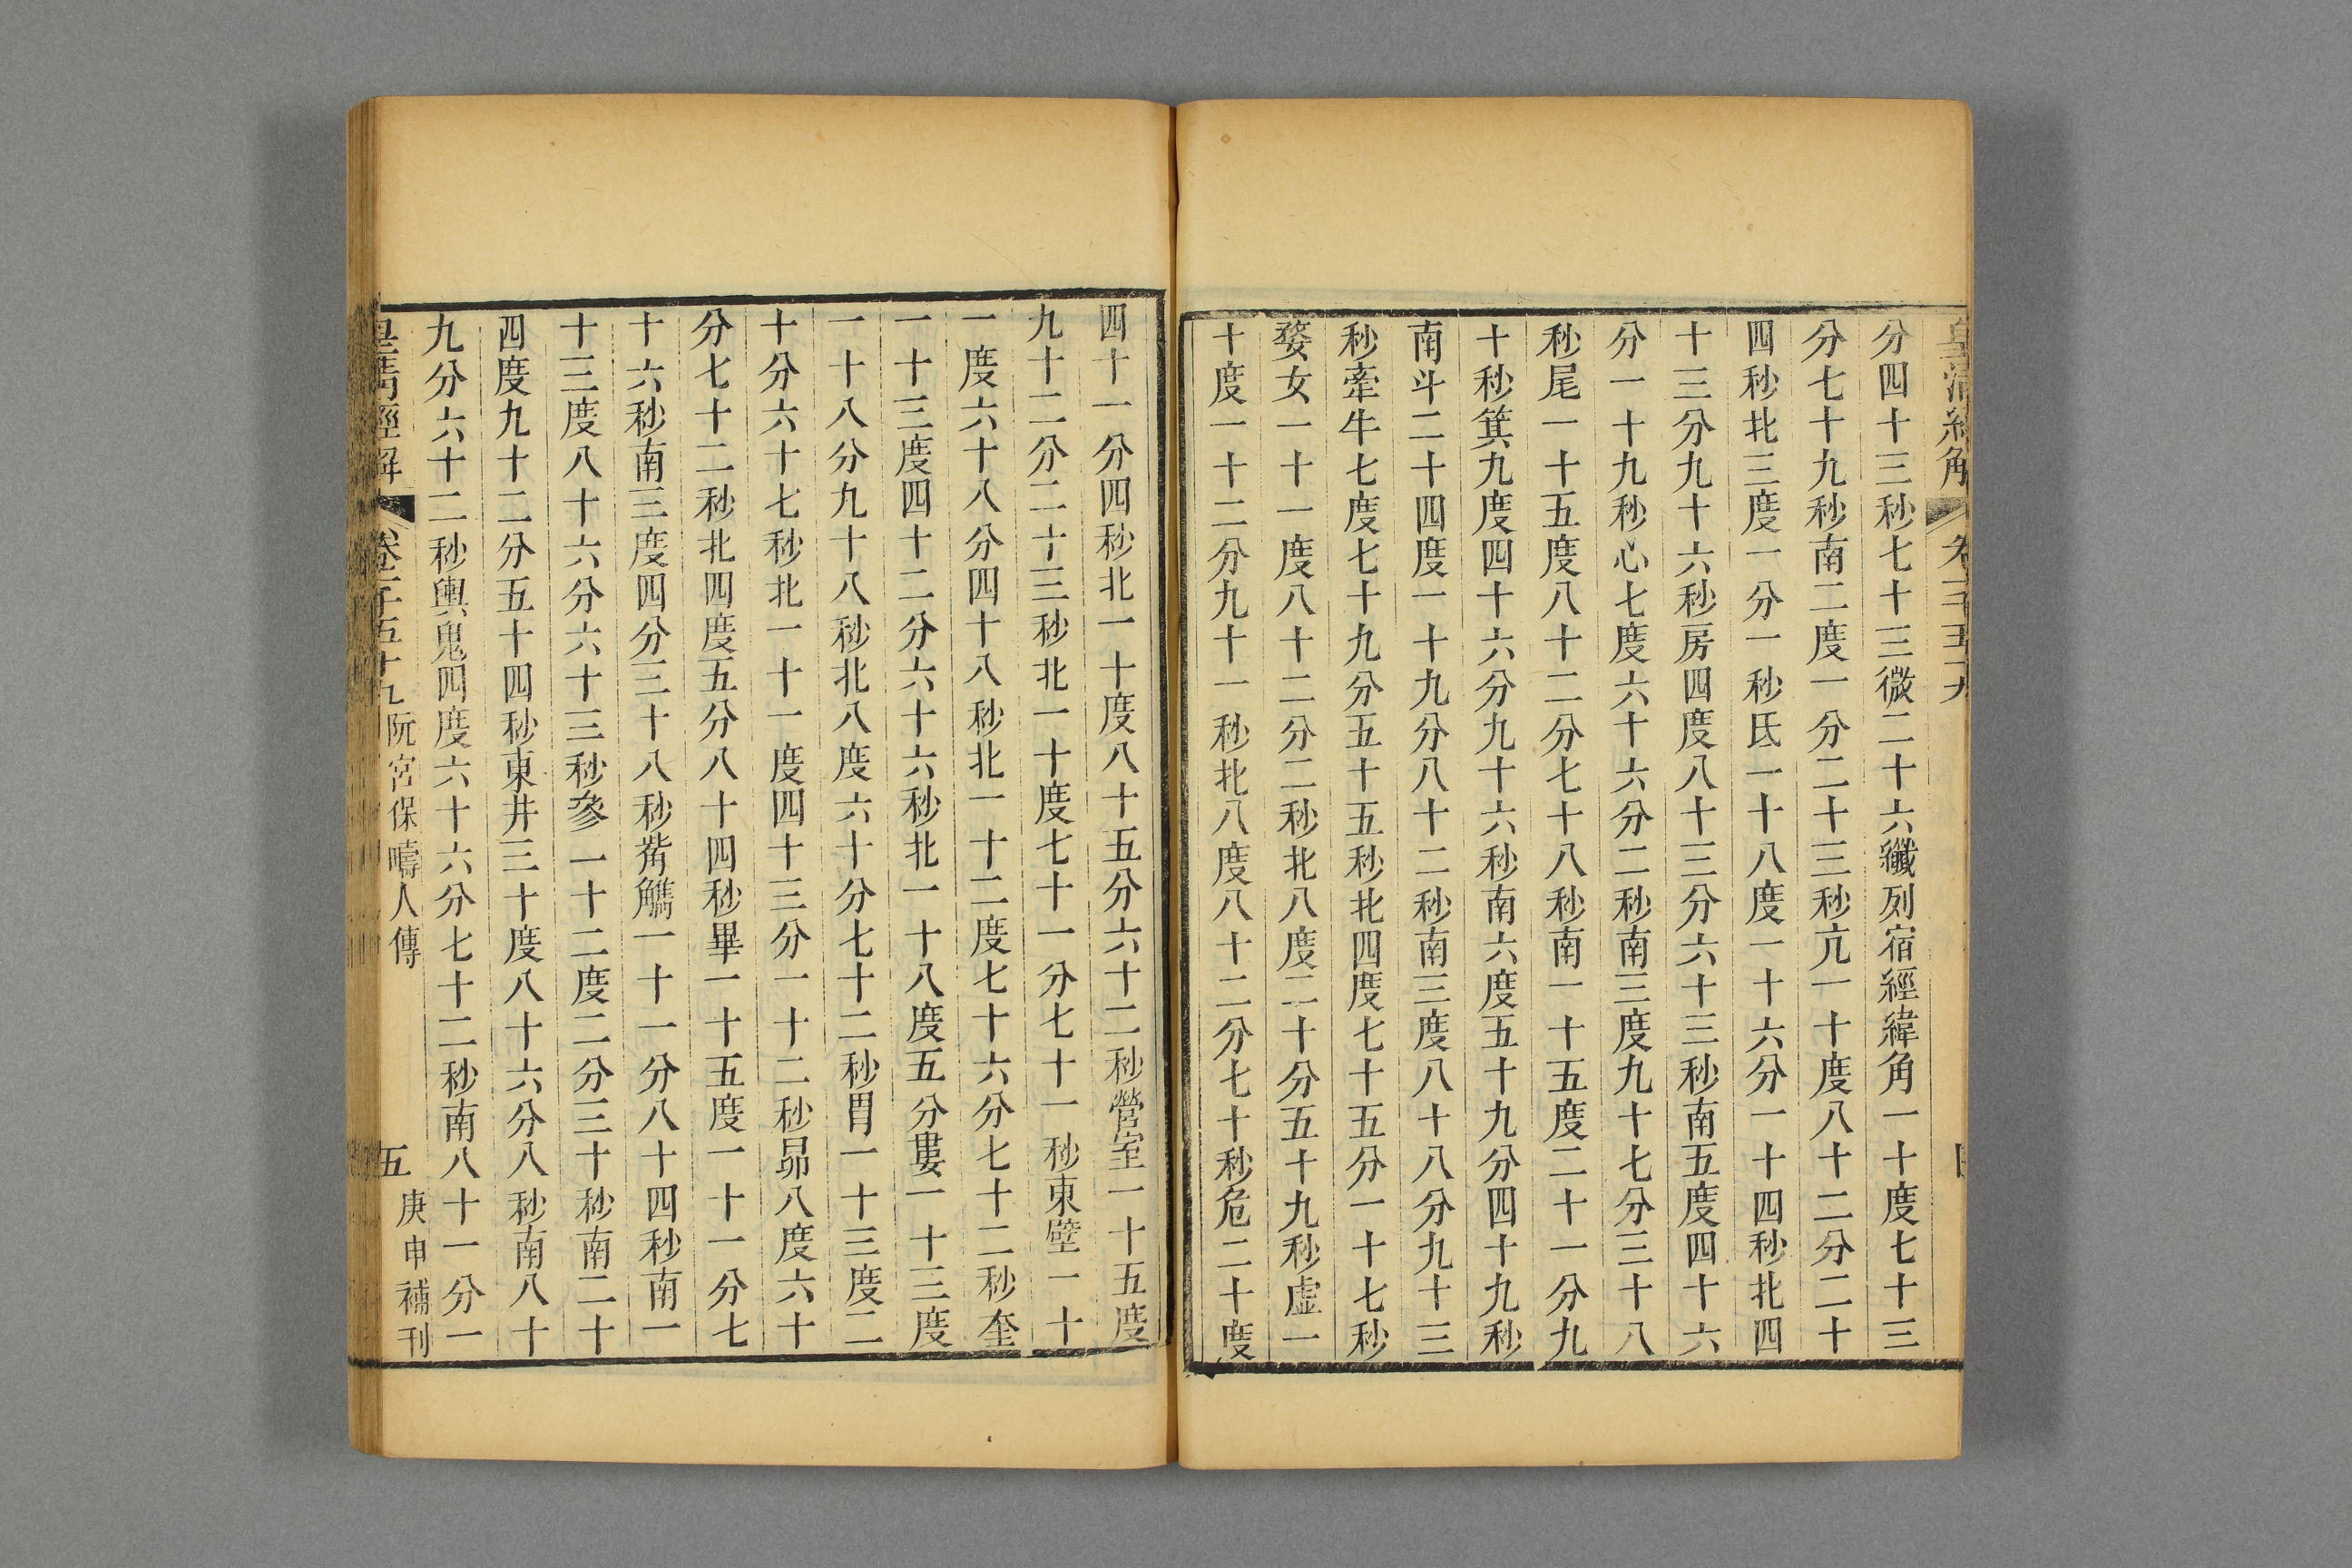 分四十三秒七十三微二十六纖列宿經緯角一十度七十三
分七十九秒南二度一分二十三秒亢一十度八十二分二十
四秒北三度一分一秒氐一十八度一十六分一十四秒北四
十三分九十六秒房四度八十三分六十三秒南五度四十六
分一十九秒心七度六十六分二秒南三度九十七分三十八
秒尾一十五度八十二分七十八秒南一十五度二十一分九
十秒箕九度四十六分九十六秒南六度五十九分四十九秒
南斗二十四度一十九分八十二秒南三度八十八分九十三
秒牽牛七度七十九分五十五秒北四度七十五分一十七秒
婺女一十一度八十二分二秒北八度二十分五十九秒虛一
十度一十二分九十一秒北八度八十二分七十秒危二十度
四十一分四秒北一十度八十五分六十二秒營室一十五度
九十二分二十三秒北一十度七十一分七十一秒東壁一十
一度六十八分四十八秒北一十二度七十六分七十二秒奎
一十三度四十二分六十六秒北一十八度五分婁一十三度
一十八分九十八秒北八度六十分七十二秒胃一十三度二
十分六十七秒北一十一度四十三分一十二秒昴八度六十
分七十二秒北四度五分八十四秒畢一十五度一十一分七
十六秒南三度四分三十八秒觜觿一十一分八十四秒南一
十三度八十六分六十三秒參一十二度二分三十秒南二十
四度九十二分五十四秒東井三十度八十六分八秒南八十
九分六十二秒輿鬼四度六十六分七十二秒南八十一分一
皇淸經解 卷千五十九 阮宮保疇人傳 五 庚申補刊